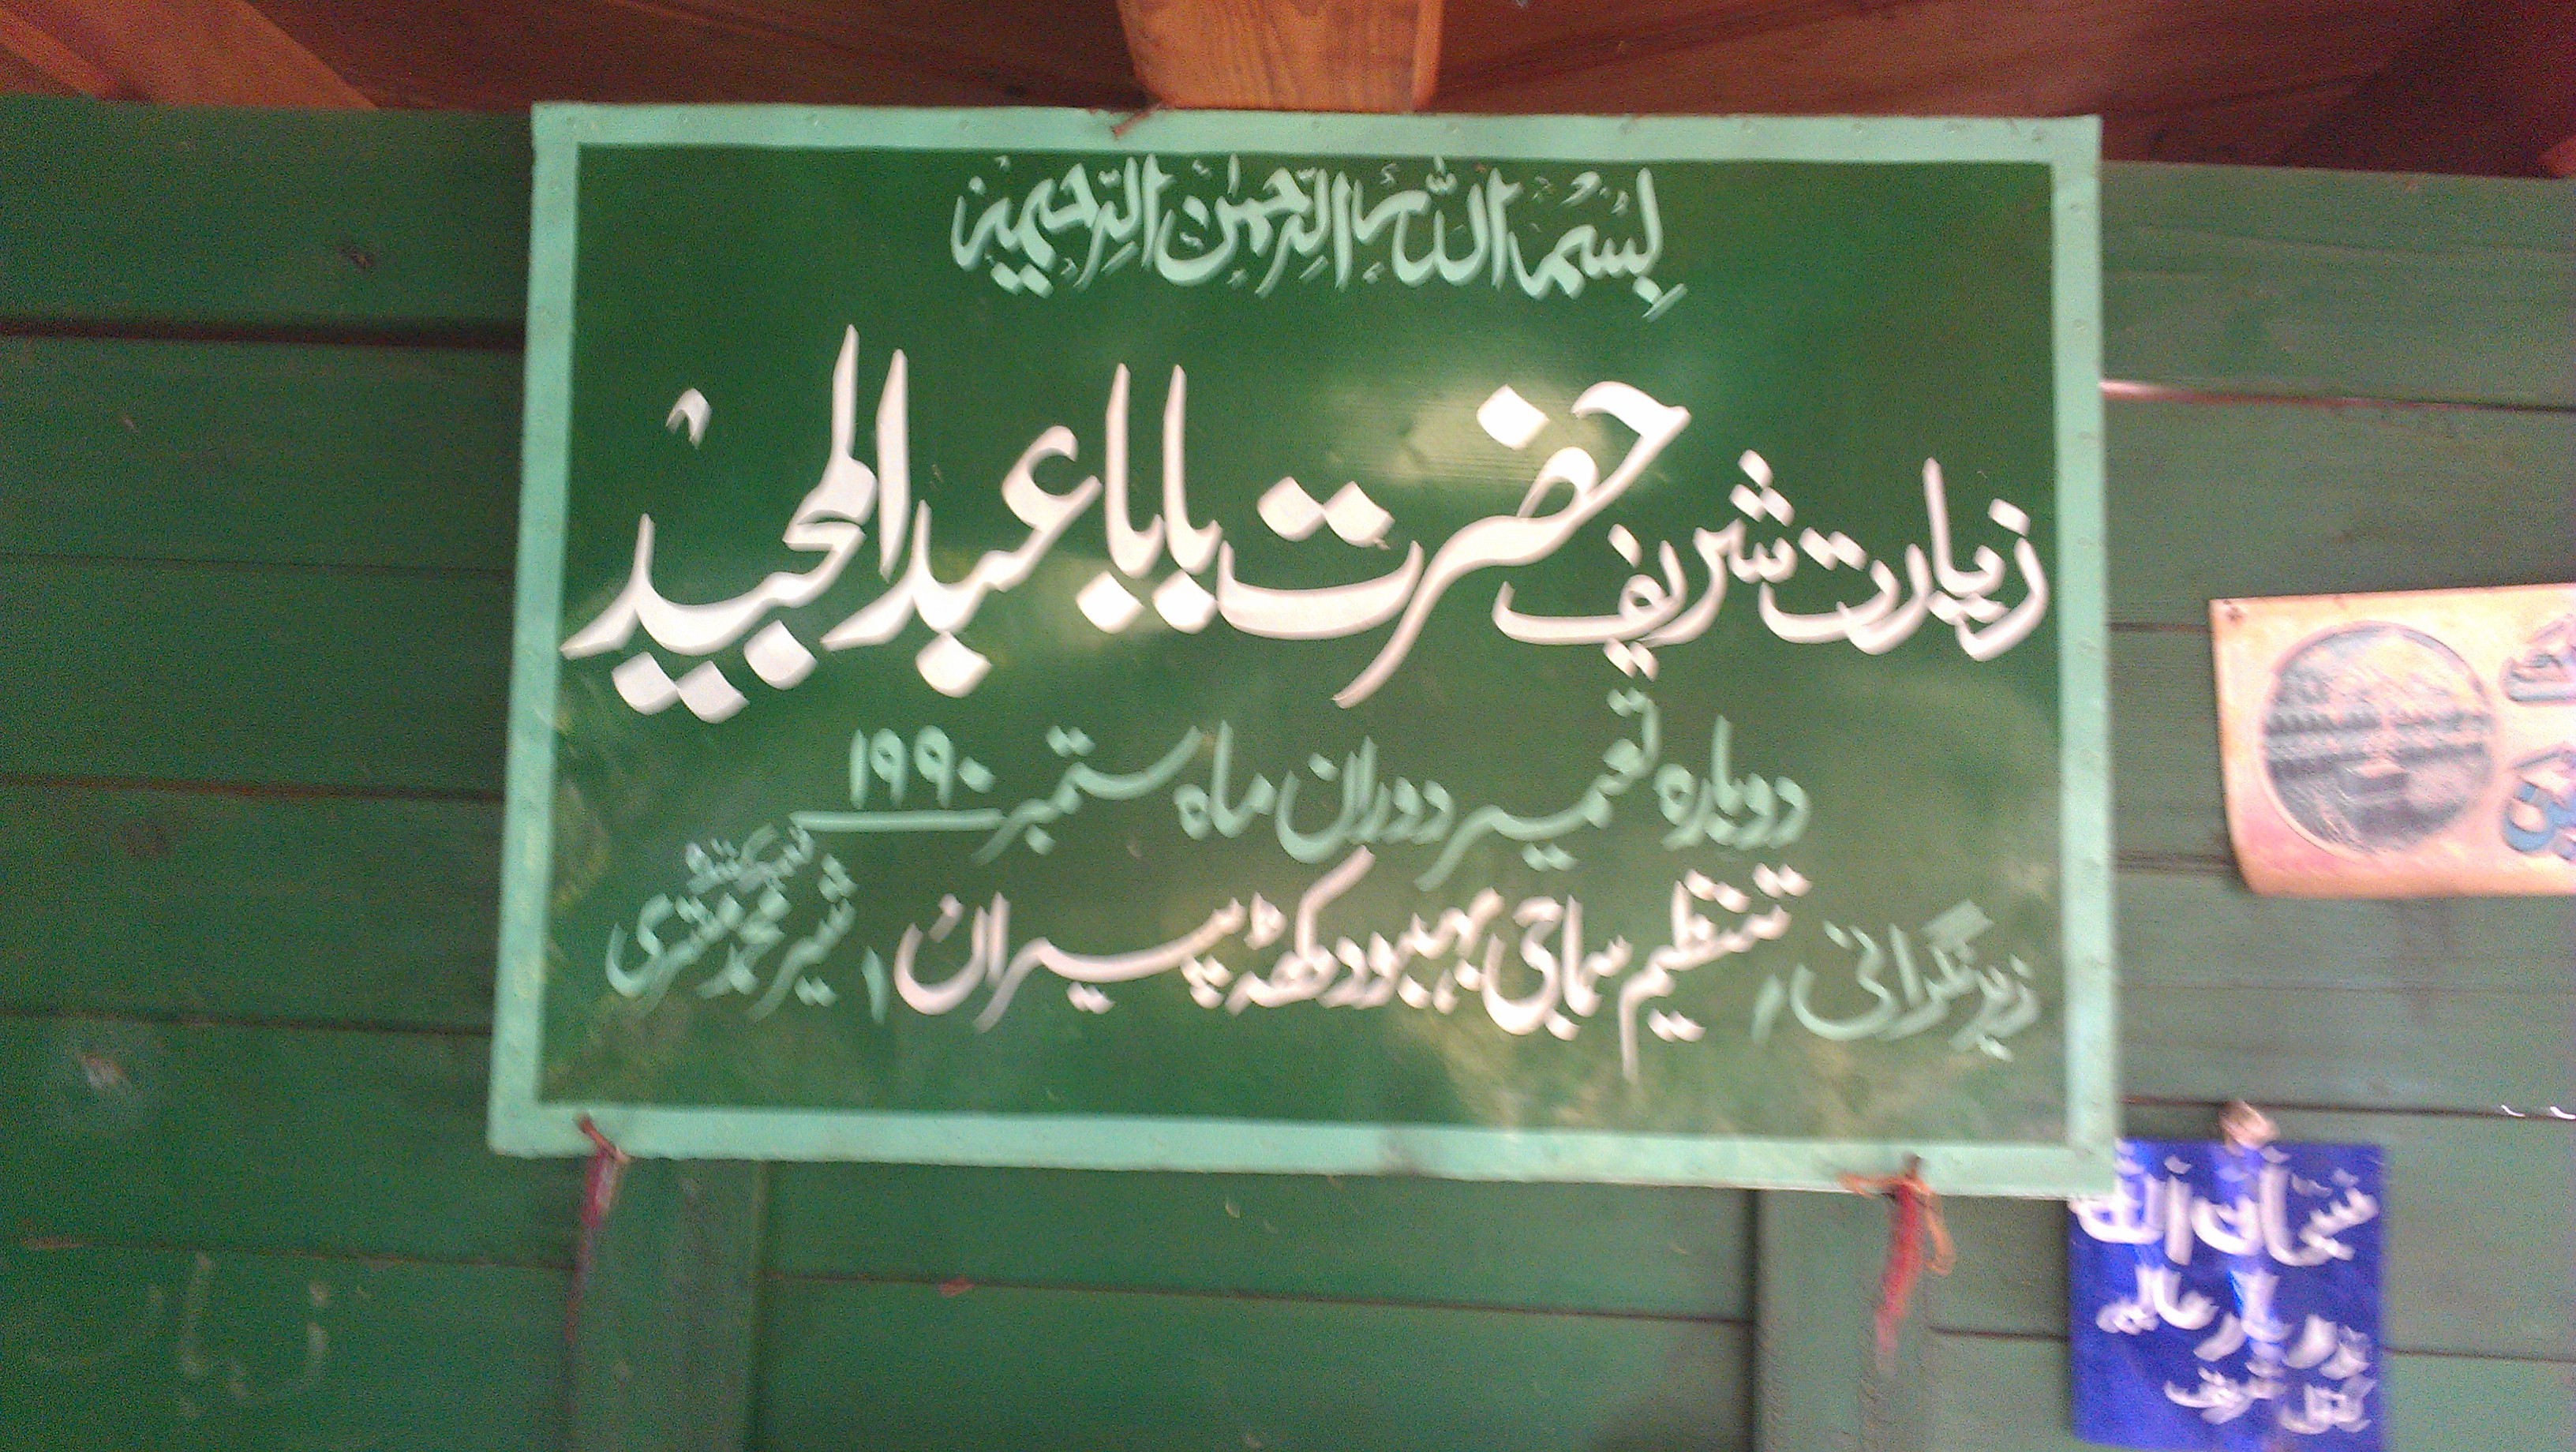 بِسْمِ اللّٰہِ الرَّحْمٰنِ الرَّحِیْمِ
زیارت شریف حضرت بابا عبدالمجیدؒ
دوبارہ تعمیر دوران ماہ ستمبر ۱۹۹۰
زیر نگرانی، تنظیم سماجی بہبود رکھڑ پیراں، شیر محمد
سبحان اللہ
دربار عالیہ
شریف